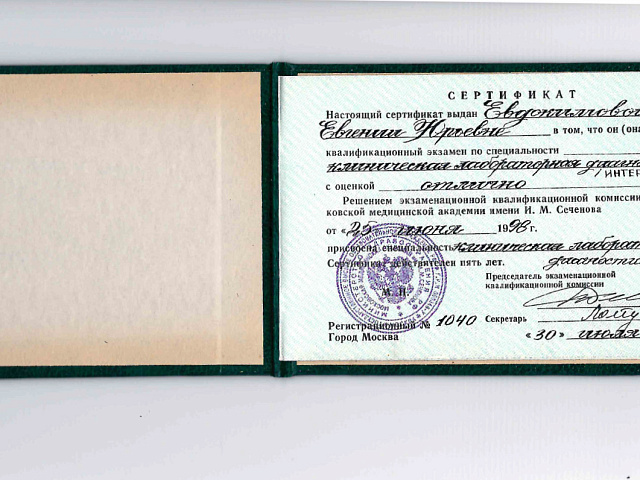 СЕРТИФИКАТ
Настоящий сертификат выдан Евдокимовой
Евгении Юрьевне в том, что он (она
квалификационный экзамен по специальности
клиническая лабораторная диагн
/ИНТЕР
с оценкой отлично
Решением экзаменационной квалификационной комиссии
ковской медицинской академии имени И. М. Сеченова
от «25 июня 1998 г.
присвоена специальность клиническая лаборат
Сертификат действителен пять лет. диагности
Председатель экзаменационной
квалификационной комиссии
М. П.
Регистрационный № 1040 Секретарь
Город Москва «30» июля